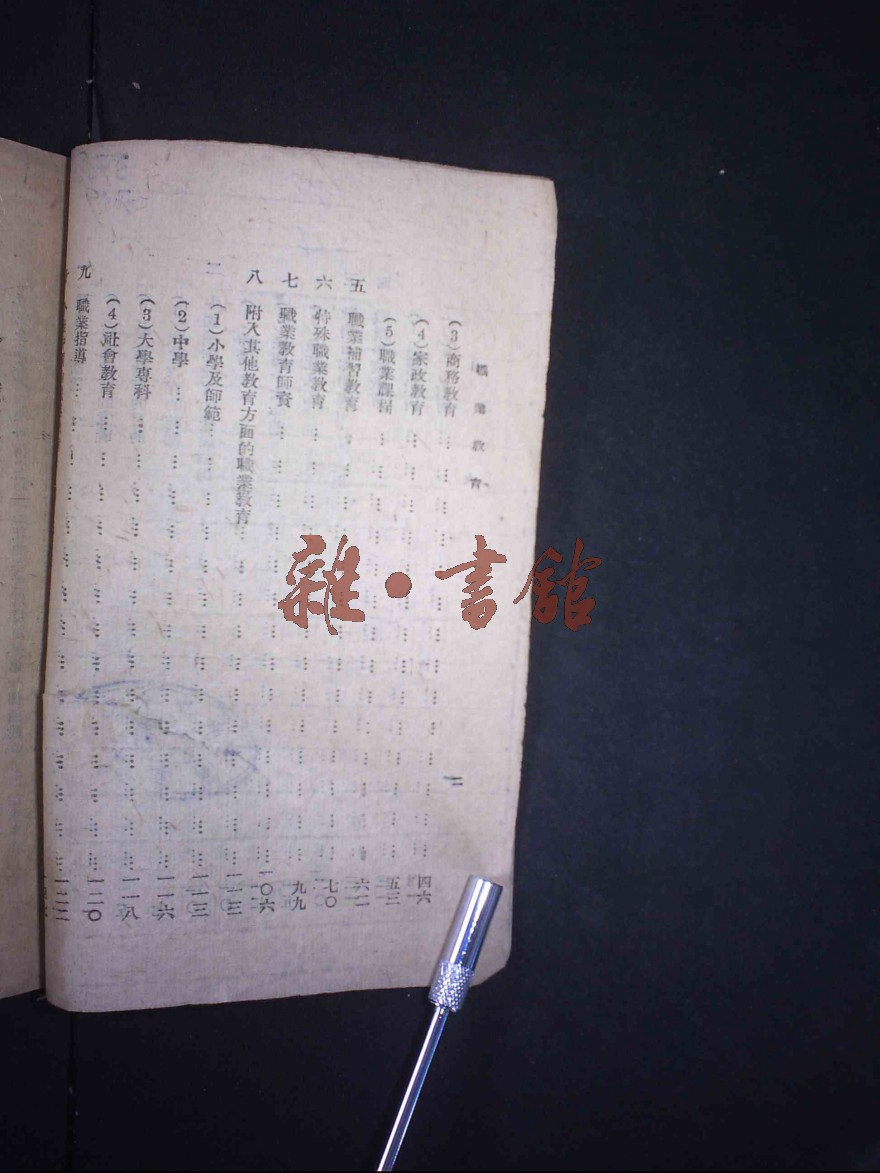 職業教育
二
(3)商務教育……四六
(4)家政教育……五三
(5)職業課程……六二
五 職業補習教育……七〇
六 特殊職業教育……九九
七 職業教育師資……一〇六
八 附入其他教育方面的職業教育……一一三
(1)小學及師範……一一三
(2)中學……一一六
(3)大學專科……一一八
(4)社會教育……一二〇
九 職業指導……一二二
雜·書館